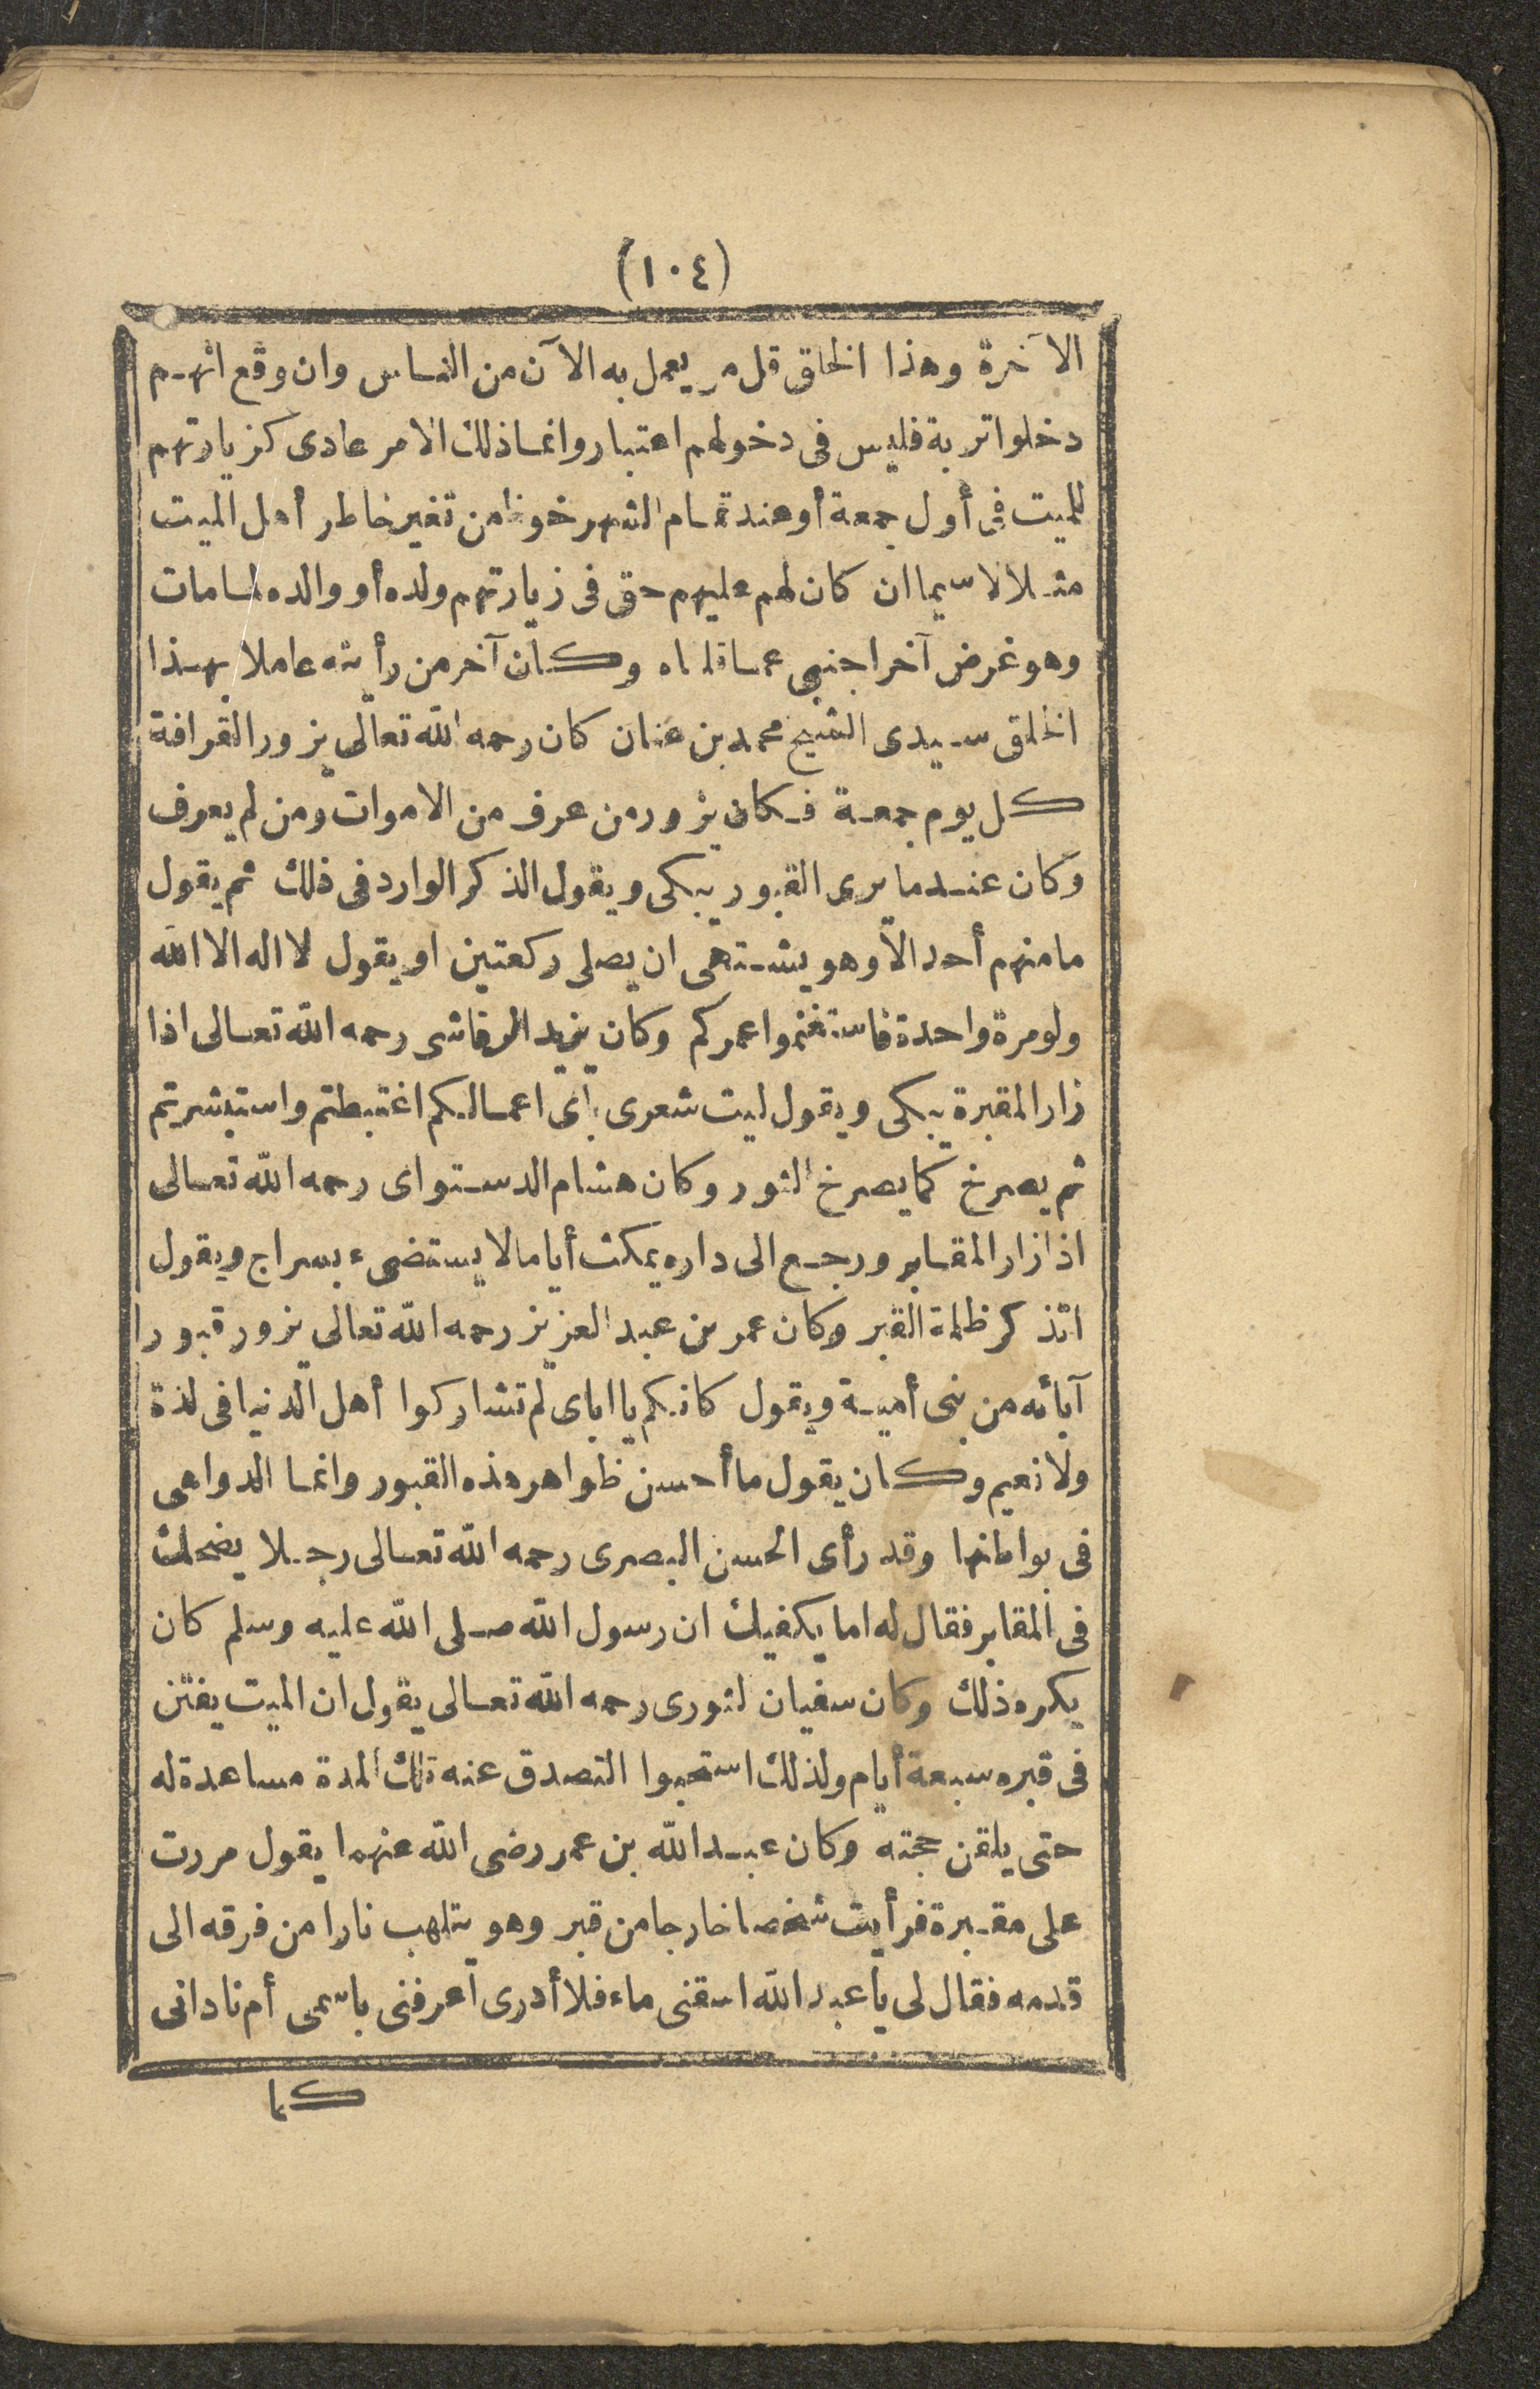 (١٠٤)
الآخرة وهذا الخلق قل من يعمل به الآن من الناس وان وقع انهم
دخلوا تربة فليس فى دخولهم اعتبار وانما ذلك الامر عادى كزيارتهم
للميت فى أول جمعة أو عند تمام الشهر خوفا من تغير خاطر أهل الميت
مثلا لا سيما ان كان لهم عليهم حق فى زيارتهم ولده أو والده لما مات
وهو غرض آخر اجنبى عما قلناه وكان آخر من رأيته عاملا بهذا
الخلق سيدى الشيخ محمد بن عنان كان رحمه الله تعالى يزور القرافة
كل يوم جمعة فكان يزور من عرف من الاموات ومن لم يعرف
وكان عندما يرى القبور يبكى ويقول الذكر الوارد فى ذلك ثم يقول
ما منهم أحد الا وهو يشتهى ان يصلى ركعتين او يقول لا اله الا الله
ولو مرة واحدة فاستغنموا عمركم وكان يزيد الرقاشى رحمه الله تعالى اذا
زار المقبرة يبكى ويقول ليت شعرى بأى اعمالكم اغتبطتم واستبشرتم
ثم يصرخ كما يصرخ الثور وكان هشام الدستواى رحمه الله تعالى
اذا زار المقابر ورجع الى داره يمكث أياما لا يستضىء بسراج ويقول
اتذكر ظلمة القبر وكان عمر بن عبد العزيز رحمه الله تعالى يزور قبور ا
آبائه من بنى أمية ويقول كانكم يا اباى لم تشاركوا أهل الدنيا فى لذة
ولا نعيم وكان يقول ما أحسن ظواهر هذه القبور وانما الدواهى
فى بواطنها وقد رأى الحسن البصرى رحمه الله تعالى رجلا يضحك
فى المقابر فقال له اما يكفيك ان رسول الله صلى الله عليه وسلم كان
يكره ذلك وكان سفيان لثورى رحمه الله تعالى يقول ان الميت يفتن
فى قبره سبعة أيام ولذلك استحبوا التصدق عنه تلك المدة مساعدة له
حتى يلقن حجته وكان عبد الله بن عمر رضى الله عنهما يقول مررت
على مقبرة فرأيت شخصا خارجا من قبر وهو يتلهب نارا من فرقه الى
قدمه فقال لى يا عبد الله اسقنى ماء فلا أدرى أعرفنى باسمى أم نادانى
كما